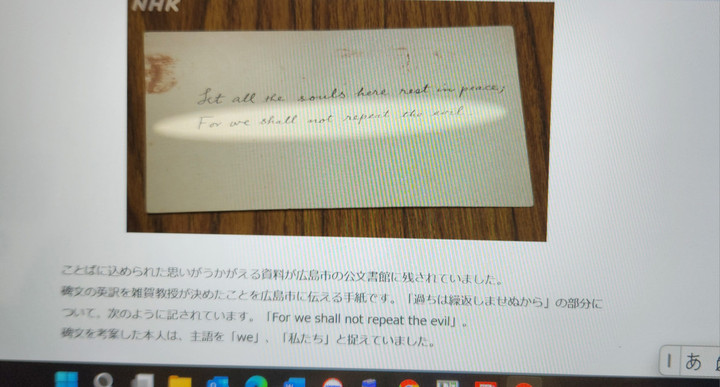 NHK
Let all the souls here rest in peace;
For we shall not repeat the evil
ことばに込められた思いがうかがえる資料が広島市の公文書館に残されていました。
碑文の英訳を雑賀教授が決めたことを広島市に伝える手紙です。「過ちは繰返しませぬから」の部分に
ついて、次のように記されています。「For we shall not repeat the evil」。
碑文を考案した本人は、主語を「we」、「私たち」と捉えていました。
あ